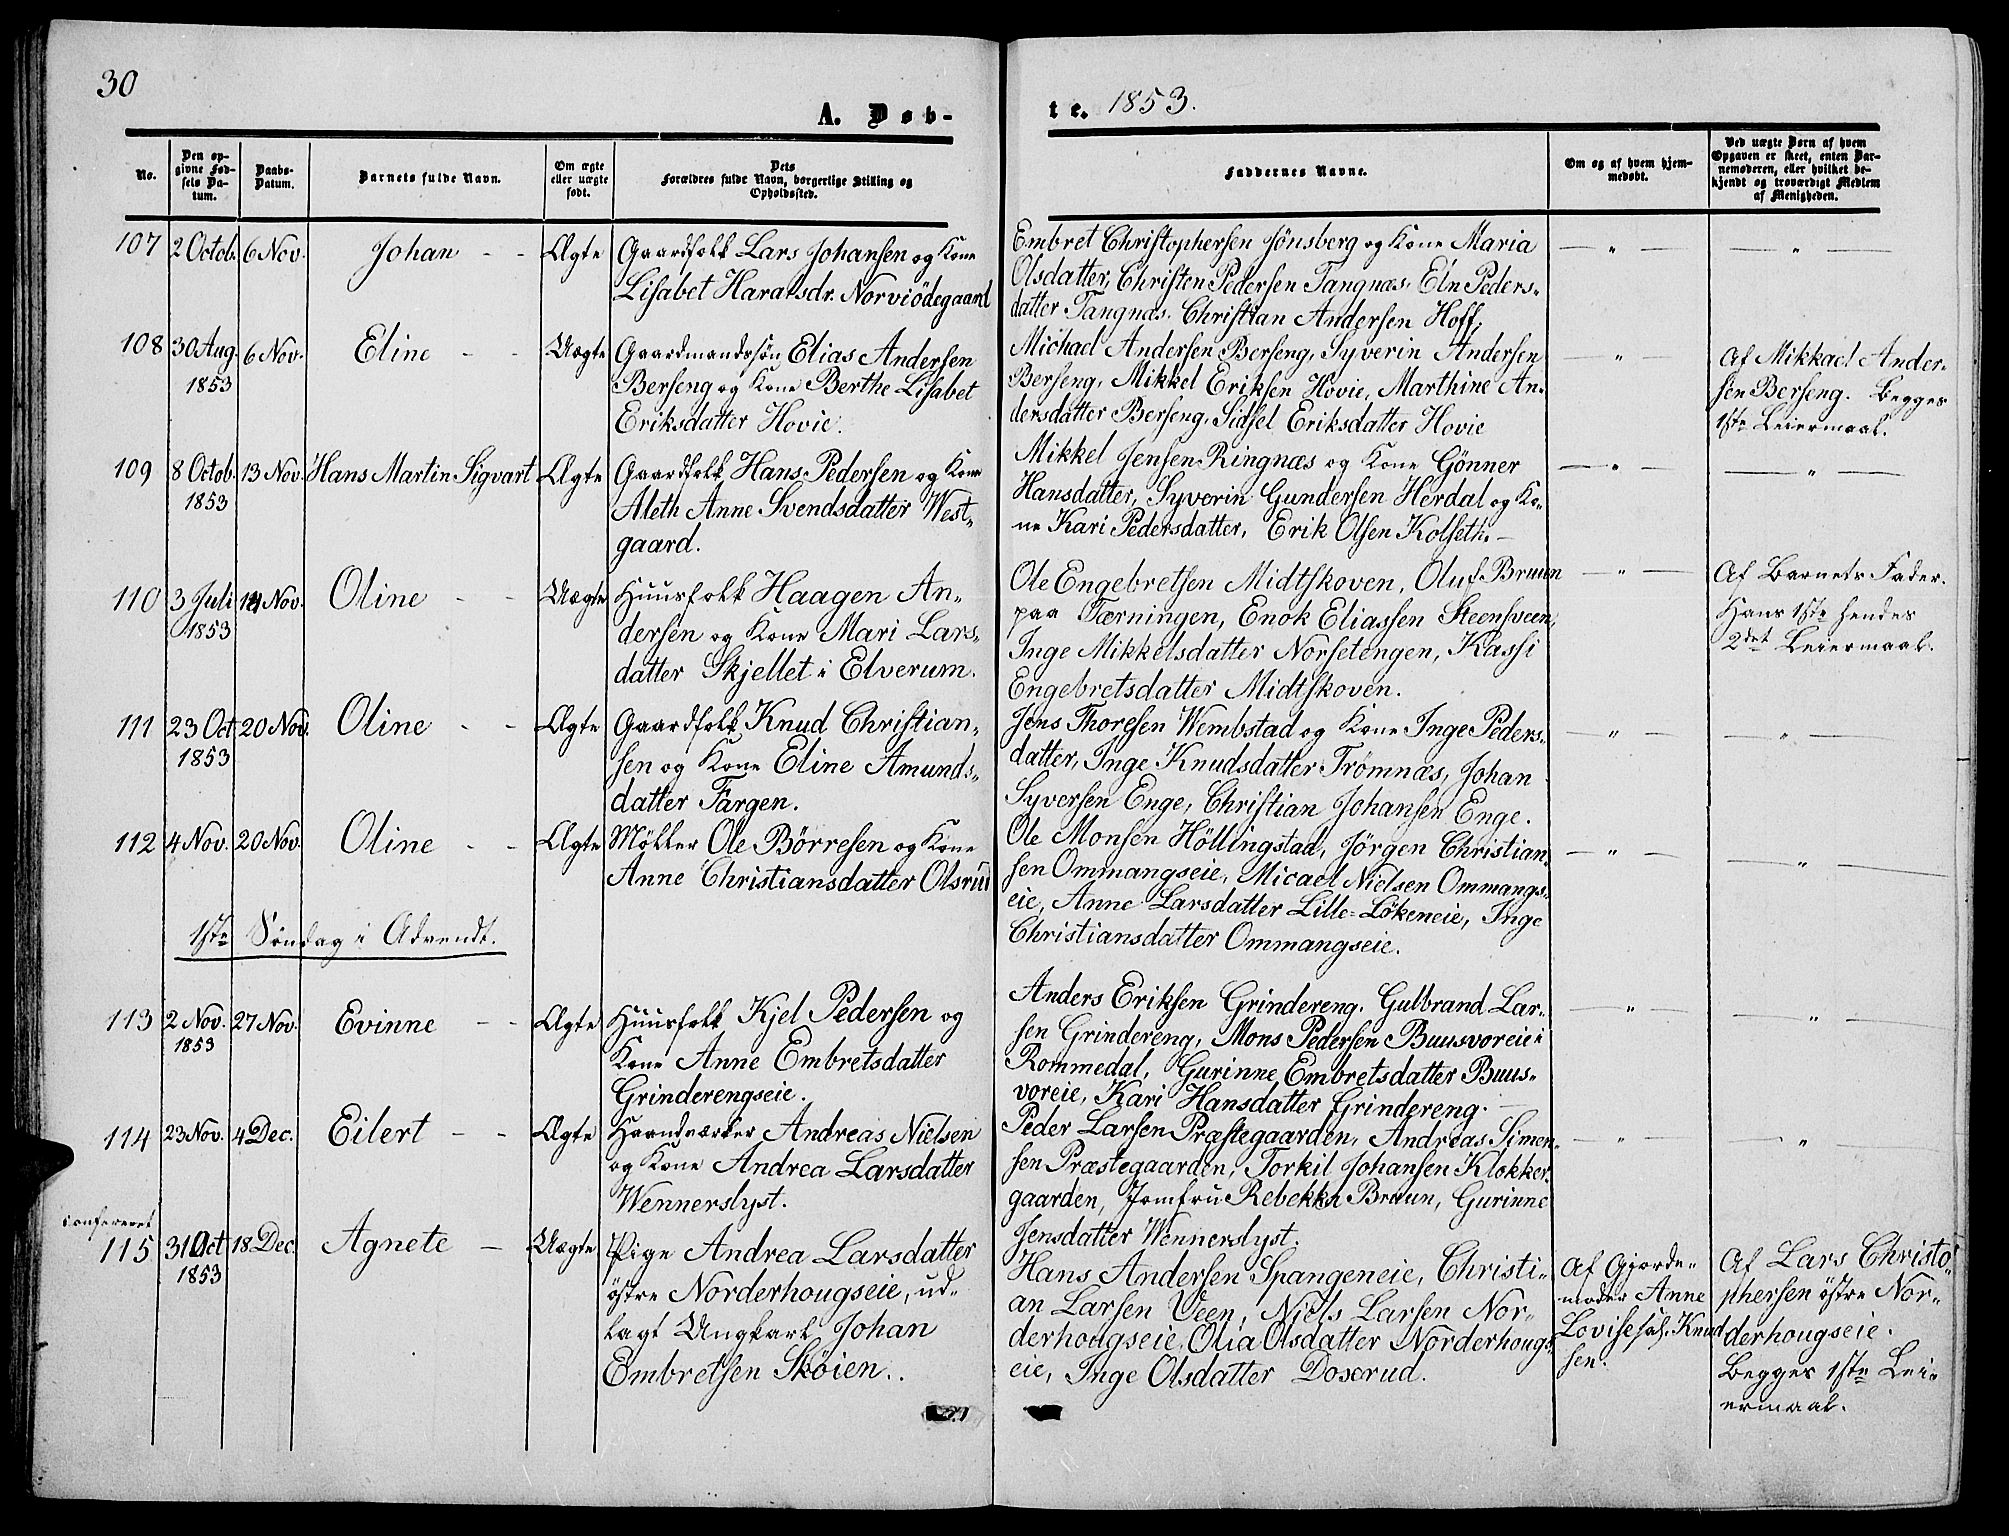 30
A. Døb-
te. 1853.
No.
Den op-
givne Fød-
sels Da-
tum.
Daabs-
Datum.
Barnets fulde Navn.
Om ægte
eller uægte
født.
Dets
Forældres fulde Navn, borgerlige Stilling og
Opholdssted.
Faddernes Navne.
Om og af hvem hjem-
medøbt.
Ved uægte Børn af hvem
Opgaven er skeet, enten Bar-
nemoderen, eller hvilket be-
kjendt og troværdigt Medlem
af Menigheden.
107 2 Octob. 6 Nov. Johan - - Ægte Gaardfolk Lars Johansen og Kone
Lisabet Haralsdr. Norviödegaard
Embret Christophersen Jönsberg og Kone Maria
Olsdatter, Christen Pedersen Tangnæs, Eln Peders-
datter Tangnæs. Christian Andersen Hoff.
— " — — " —
108 30 Aug. 6 Nov. Eline - - Uægte Gaardmandssøn Elias Andersen
1853 Berseng og Kone Berthe Lisabet
Eriksdatter Hovie.
Michael Andersen Berseng, Syverin Andersen
Berseng, Mikkel Eriksen Hovie, Marthine An-
dersdatter Berseng, Sidsel Eriksdatter Hovie
— " — Af Mikkael Ander-
sen Berseng. Begges
1ste Leiermaal.
109 8 Octob. 13 Nov. Hans Martin Sigvart Ægte Gaardfolk Hans Pedersen og Kone
1853 Aleth Anne Svendsdatter West-
gaard.
Mikkel Jensen Ringnæs og Kone Gönner
Hansdatter, Syverin Gundersen Herdal og Ko-
ne Kari Pedersdatter, Erik Olsen Kolseth. —
— " — — " —
110 3 Juli 14 Nov. Oline - - Uægte Huusfolk Haagen An-
1853 dersen og Kone Mari Lars-
datter Skjellet i Elverum.
Ole Engebretsen Midtskoven, Oluf Bruun
paa Tærningen, Enok Eliassen Steensveen,
Inge Mikkelsdatter Norsetengen, Kassi
Engebretsdatter Midtskoven.
— " — Af Barnets Fader.
Hans 1ste hendes
2det Leiermaal.
111 23 Oct 20 Nov. Oline - - Ægte Gaardfolk Knud Christian-
1853 sen og Kone Eline Amunds-
datter Fargen.
Jens Thoresen Wembstad og Kone Inge Peders-
datter, Inge Knudsdatter Trömnæs, Johan
Syversen Enge, Christian Johansen Enge.
— " — — " —
112 4 Nov. 20 Nov. Oline - - Ægte Møller Ole Börresen og Kone
Anne Christiansdatter Olsrud
Ole Monsen Höllingstad, Jörgen Christian-
sen Ommangseie, Micael Nielsen Ommangs-
eie, Anne Larsdatter Lille-Lökeneie, Inge
Christiansdatter Ommangseie.
— " — — " —
1ste Søndag i Advendt.
113 2 Nov. 27 Nov. Evinne - - Ægte Huusfolk Kjel Pedersen og
1853 Kone Anne Embretsdatter
Grinderengseie.
Anders Eriksen Grindereng. Gulbrand Lar-
sen Grindereng, Mons Pedersen Buusvoreie i
Rommedal, Gurinne Embretsdatter Buus-
voreie, Kari Hansdatter Grindereng. —
— " — — " —
114 23 Nov. 4 Dec. Eilert - - Ægte Haandværker Andreas Nielsen
og Kone Andrea Larsdatter
Wennerslyst.
Peder Larsen Præstegaarden, Andreas Simen-
sen Præstegaarden, Torkil Johansen Klokker-
gaarden, Jomfru Rebekka Bruun, Gurinne
Jensdatter Wennerslyst.
— " — — " —
confereret
115 31 Oct 18 Dec. Agnete — Uægte Pige Andrea Larsdatter
1853 östre Norderhougseie, ud-
lagt Ungkarl Johan
Embretsen Sköien..
Hans Andersen Spangeneie, Christi-
an Larsen Veen, Niels Larsen Nor-
derhougseie, Olia Olsdatter Norderhougs-
eie, Inge Olsdatter Doxrud.
Af Gjorde-
moder Anne
Lovise sal. Knud
sen.
Af Lars Christo-
phersen östre Nor-
derhougseie.
Begges 1ste Lei-
ermaal.